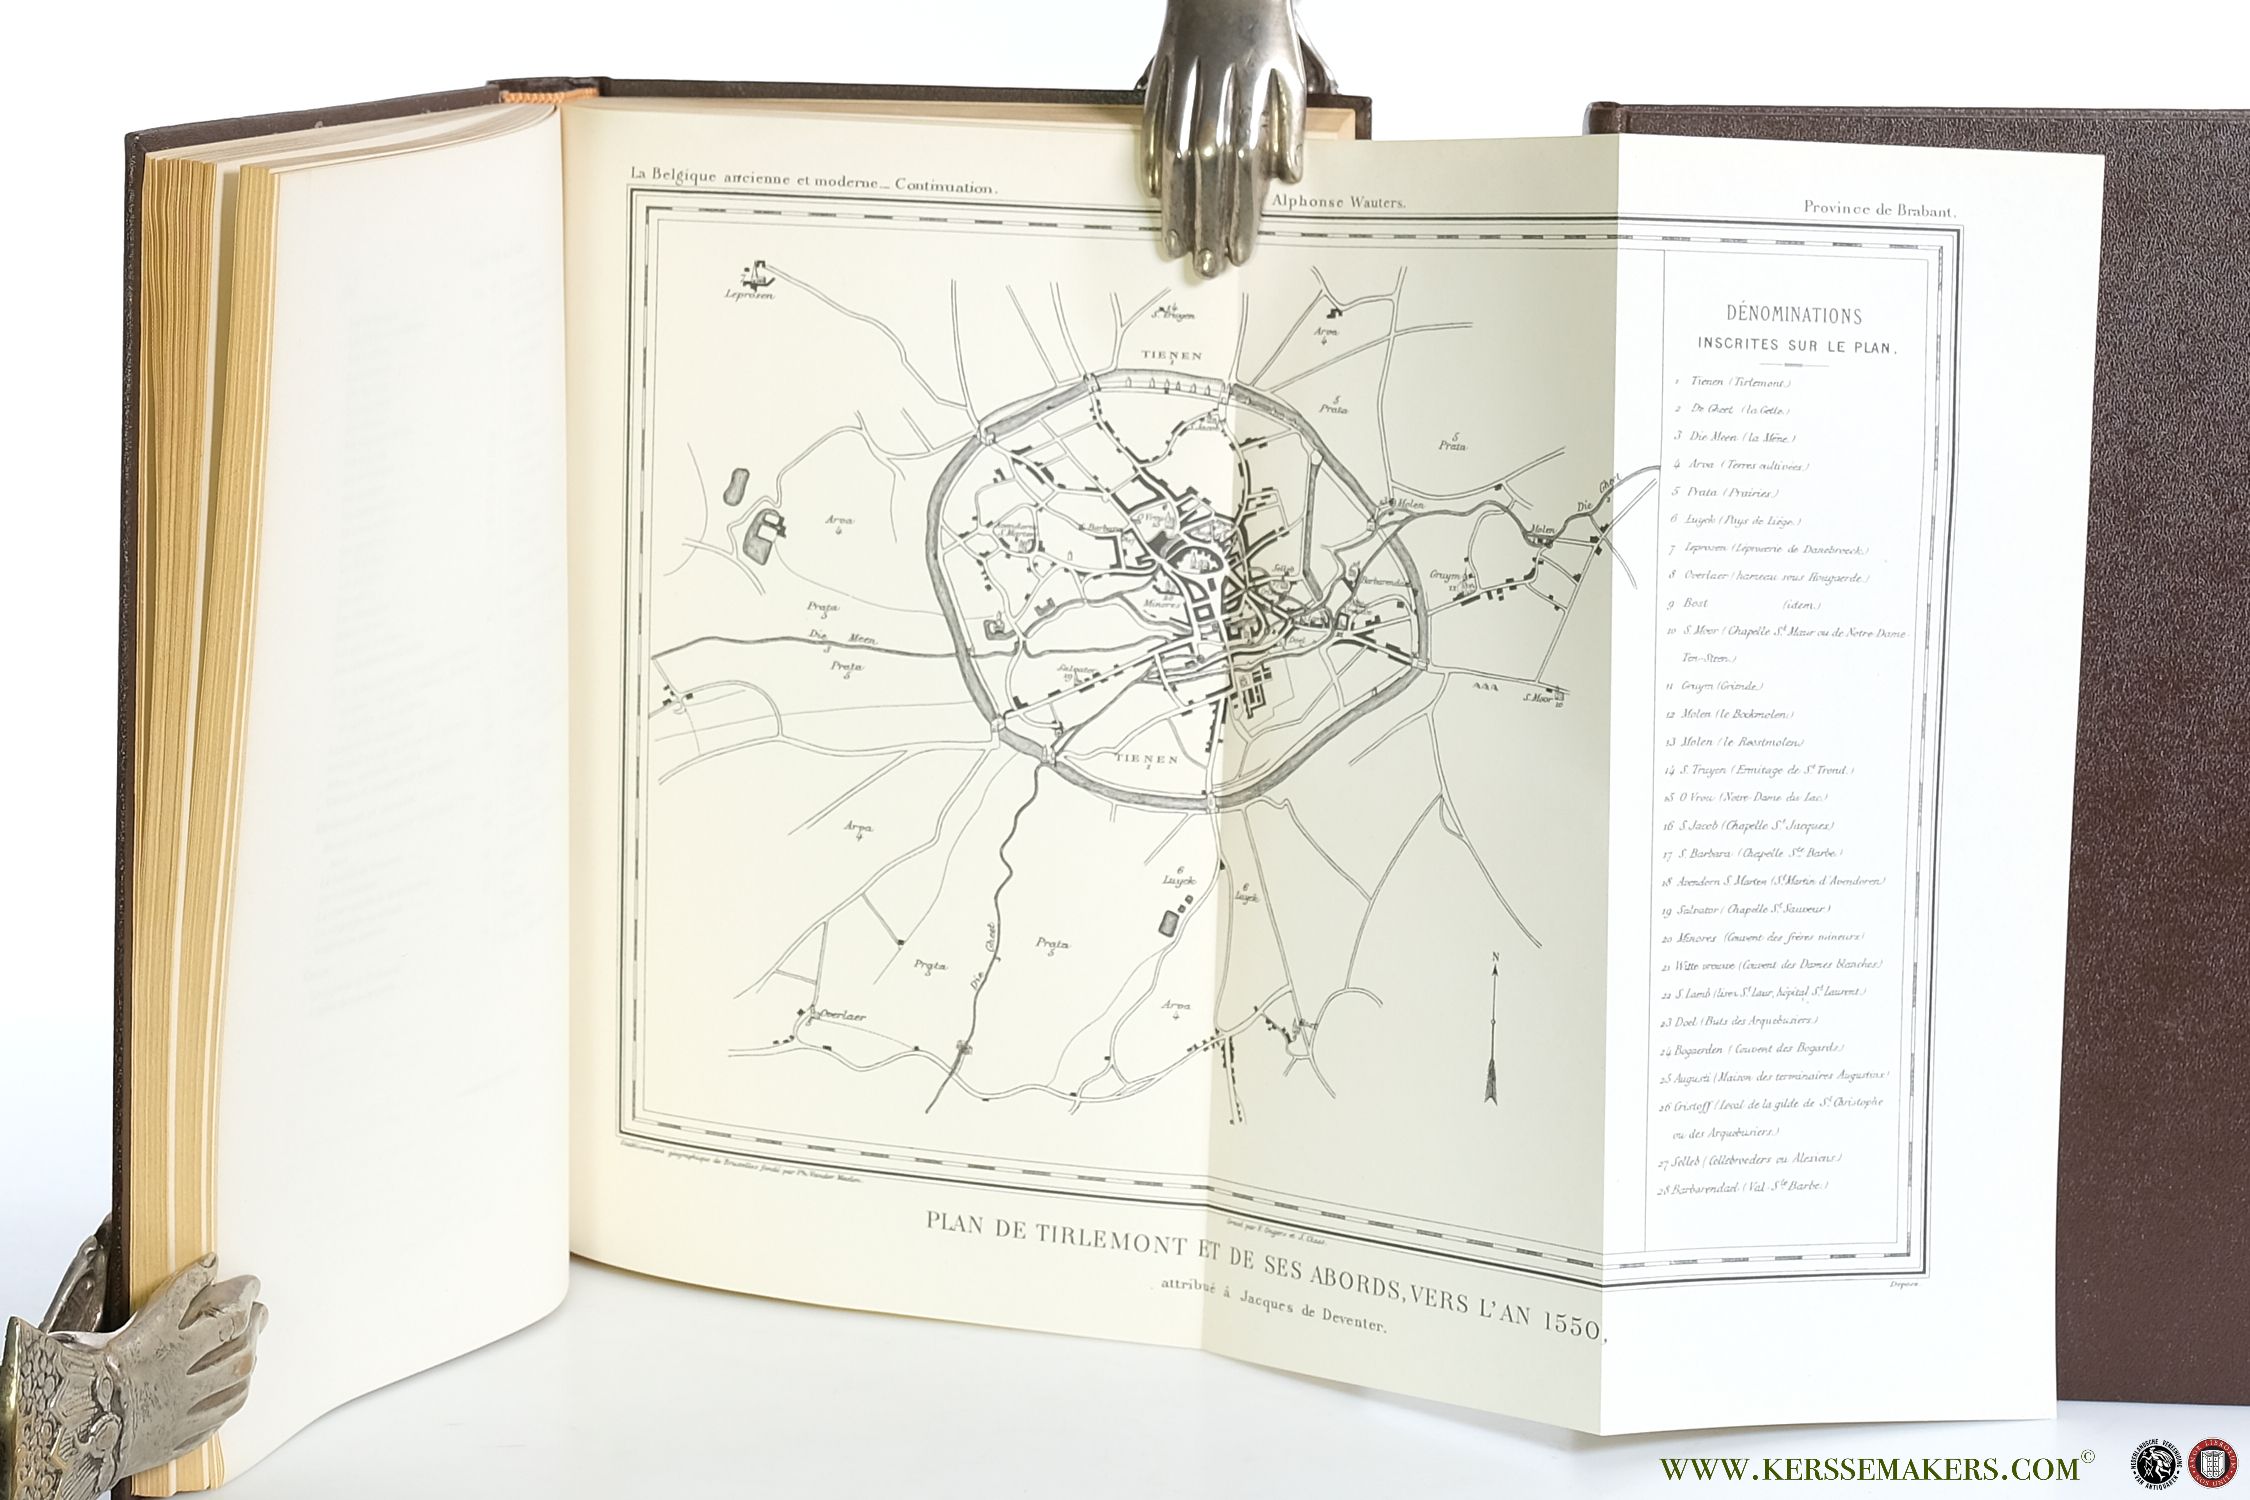 La Belgique ancienne et moderne._ Continuation.
Alphonse Wauters.
Province de Brabant.
Leprosen
7
14
S. Truyen
Arva
4
TIENEN
1
5
Prata
5
Prata
S. Jacob
Molen
Die Gheet
Molen
Arva
4
Avendorn
S. Marten
S. Barbara
O Vrou
Selleb
Barbarendal
Gruym
11
Prata
5
Minores
Doel
Die Meen
3
Prata
5
Salvator
19
S. Moor
10
TIENEN
1
Arva
4
6
Luyck
6
Luyck
Die Gheet
Prata
5
Prata
5
Arva
4
N
Overlaer
DÉNOMINATIONS
INSCRITES SUR LE PLAN.
1 Tienen (Tirlemont.)
2 De Gheet (la Gette.)
3 Die Meen (la Mène.)
4 Arva (Terres cultivées.)
5 Prata (Prairies.)
6 Luyck (Pays de Liége.)
7 Leprosen (Léproserie de Danebroeck.)
8 Overlaer (hameau sous Hougaerde.)
9 Bost (idem.)
10 S. Moor (Chapelle St. Maur ou de Notre-Dame-
Ten-Steen.)
11 Gruym (Grimde)
12 Molen (le Bockmolen.)
13 Molen (le Roostmolen)
14 S. Truyen (Ermitage de St Trond.)
15 O Vrou (Notre-Dame du Lac.)
16 S. Jacob (Chapelle St Jacques.)
17 S. Barbara (Chapelle Ste Barbe.)
18 Avendorn S. Marten (St Martin d'Avendoren)
19 Salvator (Chapelle St Sauveur.)
20 Minores (Couvent des frères mineurs)
21 Witte vrouwe (Couvent des Dames blanches)
22 S. Lamb (lisez St Laur, hôpital St Laurent.)
23 Doel (Buts des Arquebusiers.)
24 Bogaerden (Couvent des Bogards.)
25 Augusti (Maison des terminaires Augustins)
26 Cristoff (Local de la gilde de St Christophe
ou des Arquebusiers.)
27 Selleb (Cellebroeders ou Alexiens)
28 Barbarendael (Val Ste Barbe.)
Etablissement géographique de Bruxelles fondé par Ph. Vander Maelen.
PLAN DE TIRLEMONT ET DE SES ABORDS, VERS L'AN 1550,
attribué à Jacques de Deventer.
WWW.KERSSEMAKERS.COM©